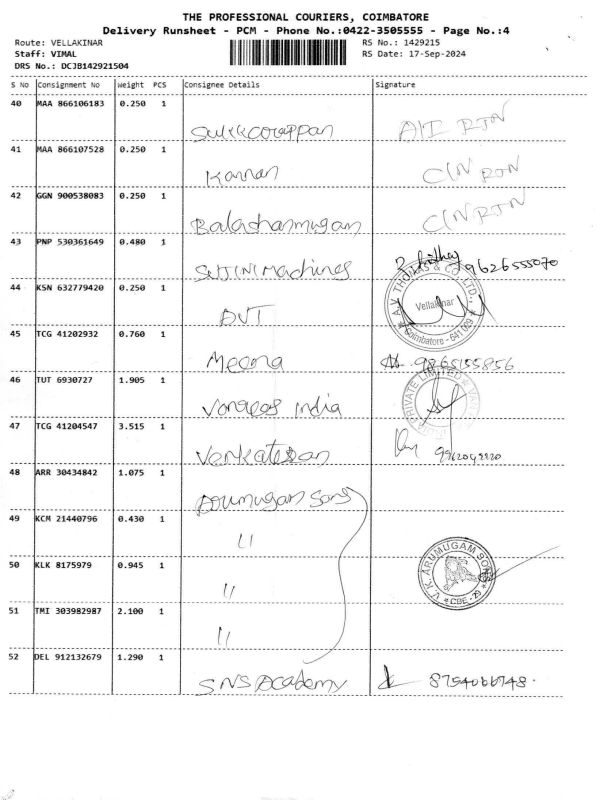 THE PROFESSIONAL COURIERS, COIMBATORE
Delivery Runsheet - PCM - Phone No.:0422-3505555 - Page No.:4
Route: VELLAKINAR RS No.: 1429215
Staff: VIMAL RS Date: 17-Sep-2024
DRS No.: DCJB142921504
S No Consignment No Weight PCS Consignee Details Signature
40 MAA 866106183 0.250 1
41 MAA 866107528 0.250 1 Kannan
42 GGN 900538083 0.250 1 Balashanmugan
43 PNP 530361649 0.480 1 Machines 9626555070
A.V. THOMAS & CO. LTD., Vellakinar Coimbatore - 641 029
44 KSN 632779420 0.250 1 DVT
45 TCG 41202932 0.760 1 Meena 9865155856
46 TUT 6930727 1.905 1 India
PRIVATE LIMITED
47 TCG 41204547 3.515 1 Venkatesan
48 ARR 30434842 1.075 1 Arumugan Sons
49 KCM 21440796 0.430 1 "
50 KLK 8175979 0.945 1 "
V.K. ARUMUGAM SONS CBE - 29
51 TMI 303982987 2.100 1 "
52 DEL 912132679 1.290 1 SNS Academy 8754066748